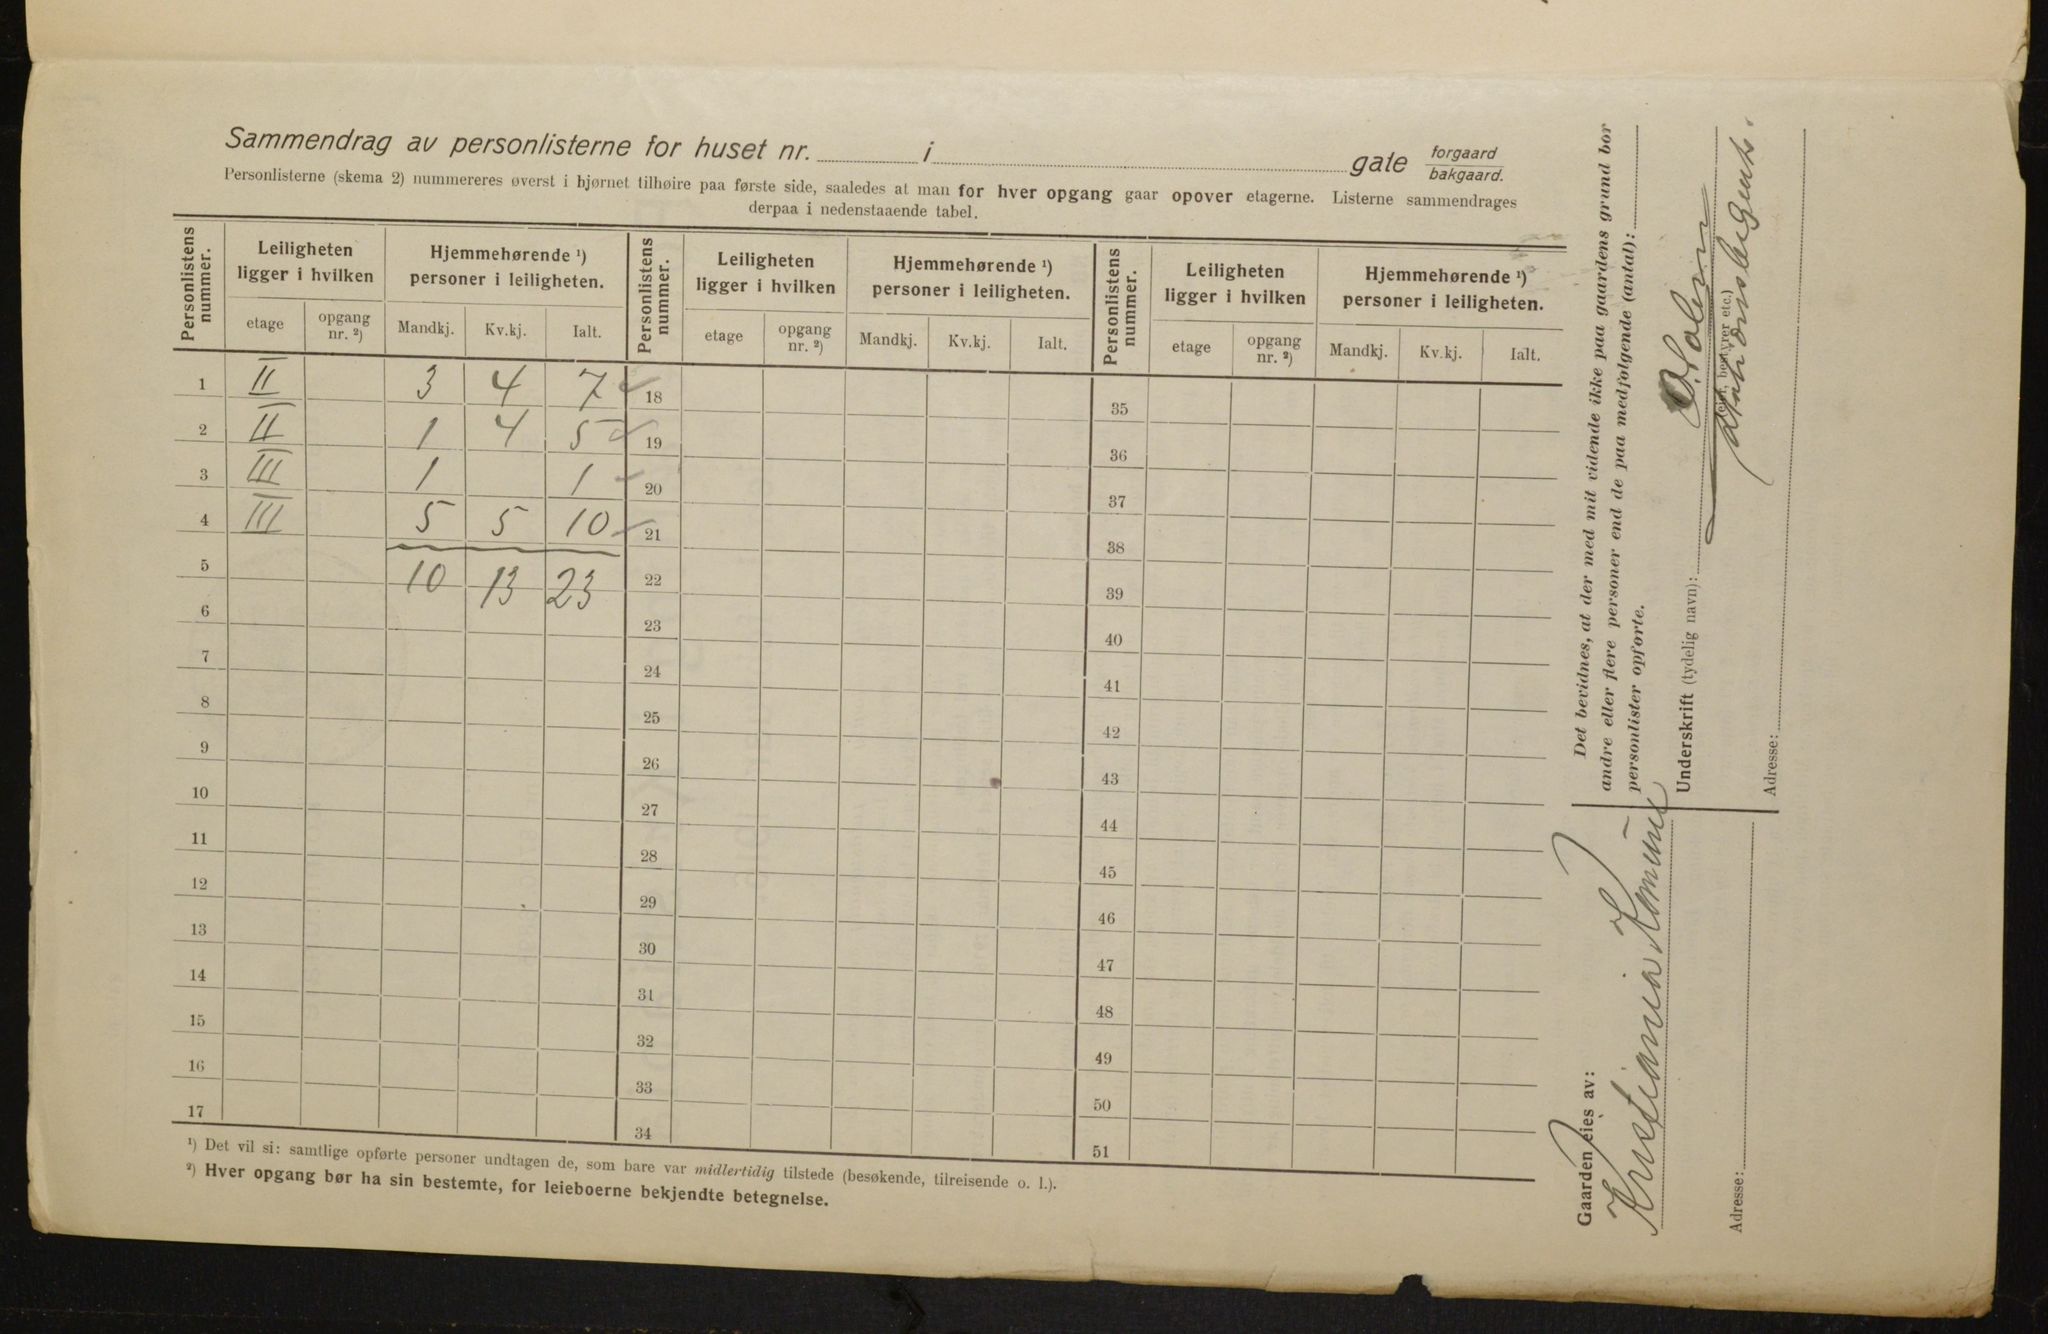 Sammendrag av personlisterne for huset nr. i gate forgaard bakgaard.
Personlisterne (skema 2) nummereres øverst i hjørnet tilhøire paa første side, saaledes at man for hver opgang gaar opover etagerne. Listerne sammendrages
derpaa i nedenstaaende tabel.
Personlistens nummer. Leiligheten ligger i hvilken Hjemmehørende ¹) personer i leiligheten. Personlistens nummer. Leiligheten ligger i hvilken Hjemmehørende ¹) personer i leiligheten. Personlistens nummer. Leiligheten ligger i hvilken Hjemmehørende ¹) personer i leiligheten.
etage opgang nr. ²) Mandkj. Kv.kj. Ialt. etage opgang nr. ²) Mandkj. Kv.kj. Ialt. etage opgang nr. ²) Mandkj. Kv.kj. Ialt.
1 II 3 4 7 18 35
2 II 1 4 5 19 36
3 III 1 1 20 37
4 III 5 5 10 21 38
5 10 13 23 22 39
6 23 40
7 24 41
8 25 42
9 26 43
10 27 44
11 28 45
12 29 46
13 30 47
14 31 48
15 32 49
16 33 50
17 34 51
¹) Det vil si: samtlige opførte personer undtagen de, som bare var midlertidig tilstede (besøkende, tilreisende o. l.).
²) Hver opgang bør ha sin bestemte, for leieboerne bekjendte betegnelse.
Det bevidnes, at der med mit vidende ikke paa gaardens grund bor
andre eller flere personer end de paa medfølgende (antal):
personlister opførte.
Underskrift (tydelig navn):
bestyrer etc.)
Adresse:
Gaarden eies av:
Kristiania Komune
Adresse: